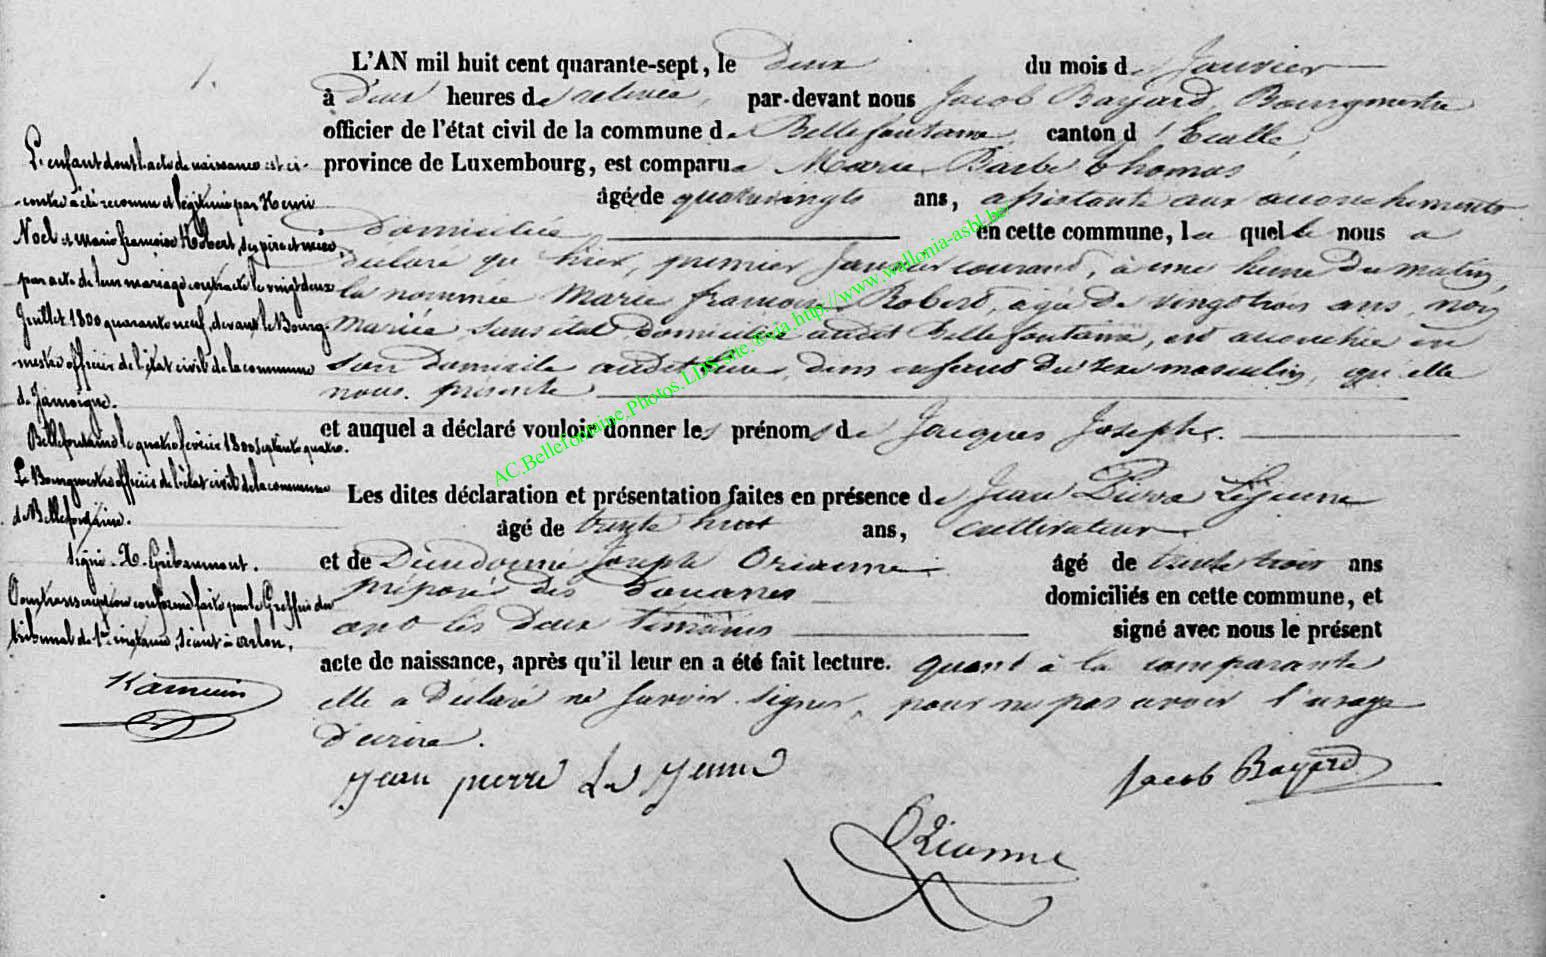 1.
L'AN mil huit cent quarante-sept, le deux du mois de Janvier
à deux heures de relevée, par-devant nous Jacob Bayard, Bourgmestre
officier de l'état civil de la commune de Bellefontaine, canton d'Etalle,
province de Luxembourg, est comparue Marie Barbe Thomas
âgée de quatrevingts ans, assistante aux accouchements
domiciliée en cette commune, laquelle nous a
déclaré qu'hier, premier Janvier courant, à une heure du matin,
la nommée Marie françoise Robert, agée de vingt trois ans, non
mariée, sans état, domiciliée audit Bellefontaine, est accouchée en
son domicile audit lieu, d'un enfant du sexe masculin, qu'elle
nous présente
et auquel a déclaré vouloir donner les prénoms de Jacques Joseph.
Les dites déclaration et présentation faites en présence de Jean Pierre Lejeune
âgé de trente huit ans, cultivateur
et de Dieudonné Joseph Orianne âgé de trente trois ans
préposé des douanes domiciliés en cette commune, et
ont les deux témoins signé avec nous le présent
acte de naissance, après qu'il leur en a été fait lecture. quant à la comparante
elle a déclaré ne savoir signer, pour ne pas avoir l'usage
d'écrire.
Jean pierre Le Jeune
Jacob Bayard
Orianne
L'enfant dont l'acte de naissance est ci-
contre a été reconnu et légitimé par Henri
Noël et Marie françoise Robert, ses père et mère,
par acte de leur mariage contracté le vingt deux
Juillet 1800 quarante neuf, devant le Bourg-
mestre officier de l'état civil de la commune
de Jamoigne.
Bellefontaine le quatre février 1800 septante quatre.
Le Bourgmestre officier de l'état civil de la commune
de Bellefontaine.
signé - X. Gribaumont.
Pour transcription conforme faite par le Greffier du
tribunal de 1re instance, séant à Arlon,
AC.Bellefontaine.Photos.LDS site & via http://www.wallonia-asbl.be/